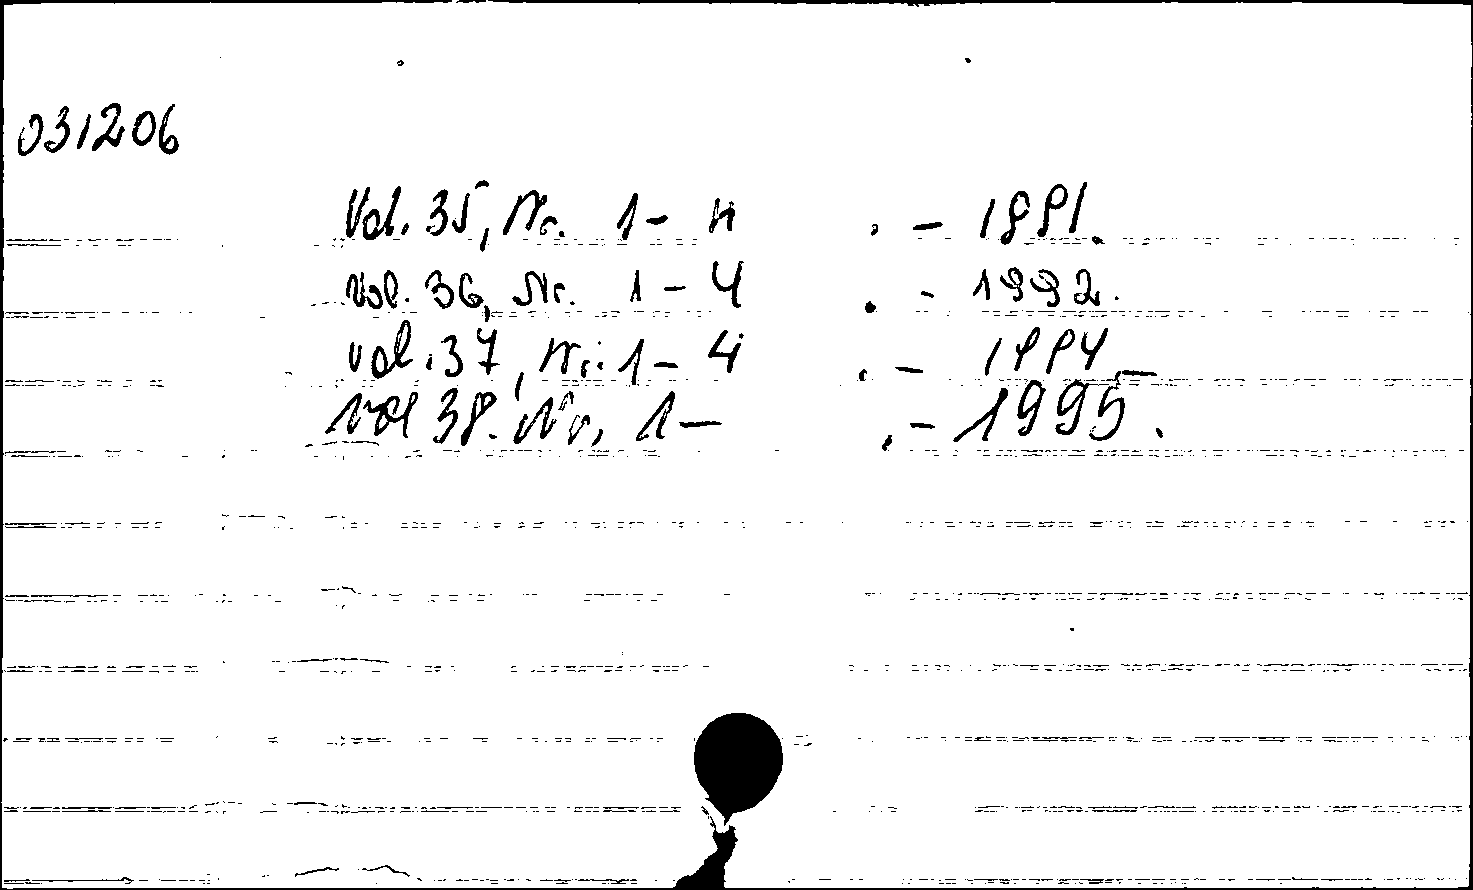 031206
Vol. 35, Nr. 1-4 . - 1991.
Vol. 36, Nr. 1-4 . - 1992.
vol. 37, Nr. 1-4 . - 1994
Vol 38. Nr. 1- . - 1995.